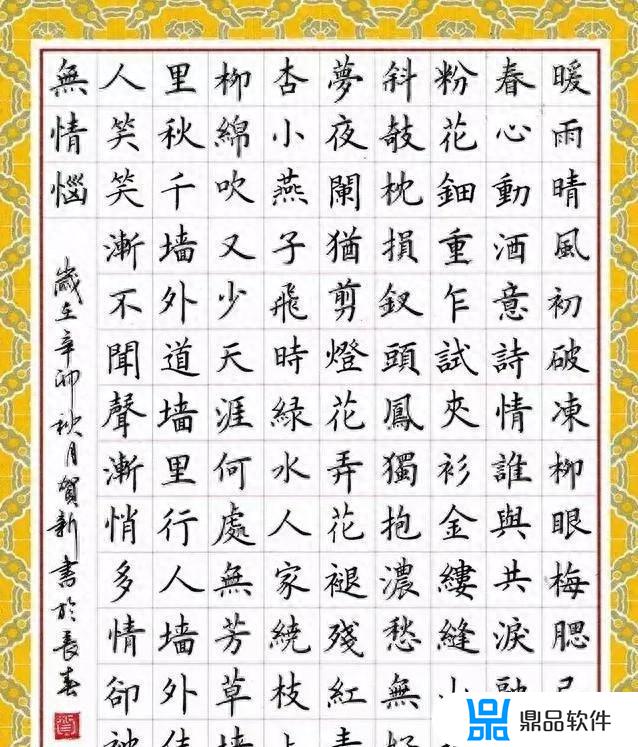 暖雨晴風初破凍柳眼梅腮
春心動酒意詩情誰與共淚
粉花鈿重乍試夾衫金縷縫
斜敧枕損釵頭鳳獨抱濃愁無
夢夜闌猶剪燈花弄花褪殘紅
杏小燕子飛時綠水人家繞枝
柳綿吹又少天涯何處無芳草
里秋千墙外道墙里行人墙外
人笑笑漸不聞聲漸悄多情卻
無情惱
歲在辛卯秋月賀新書於長春
鼎品软件